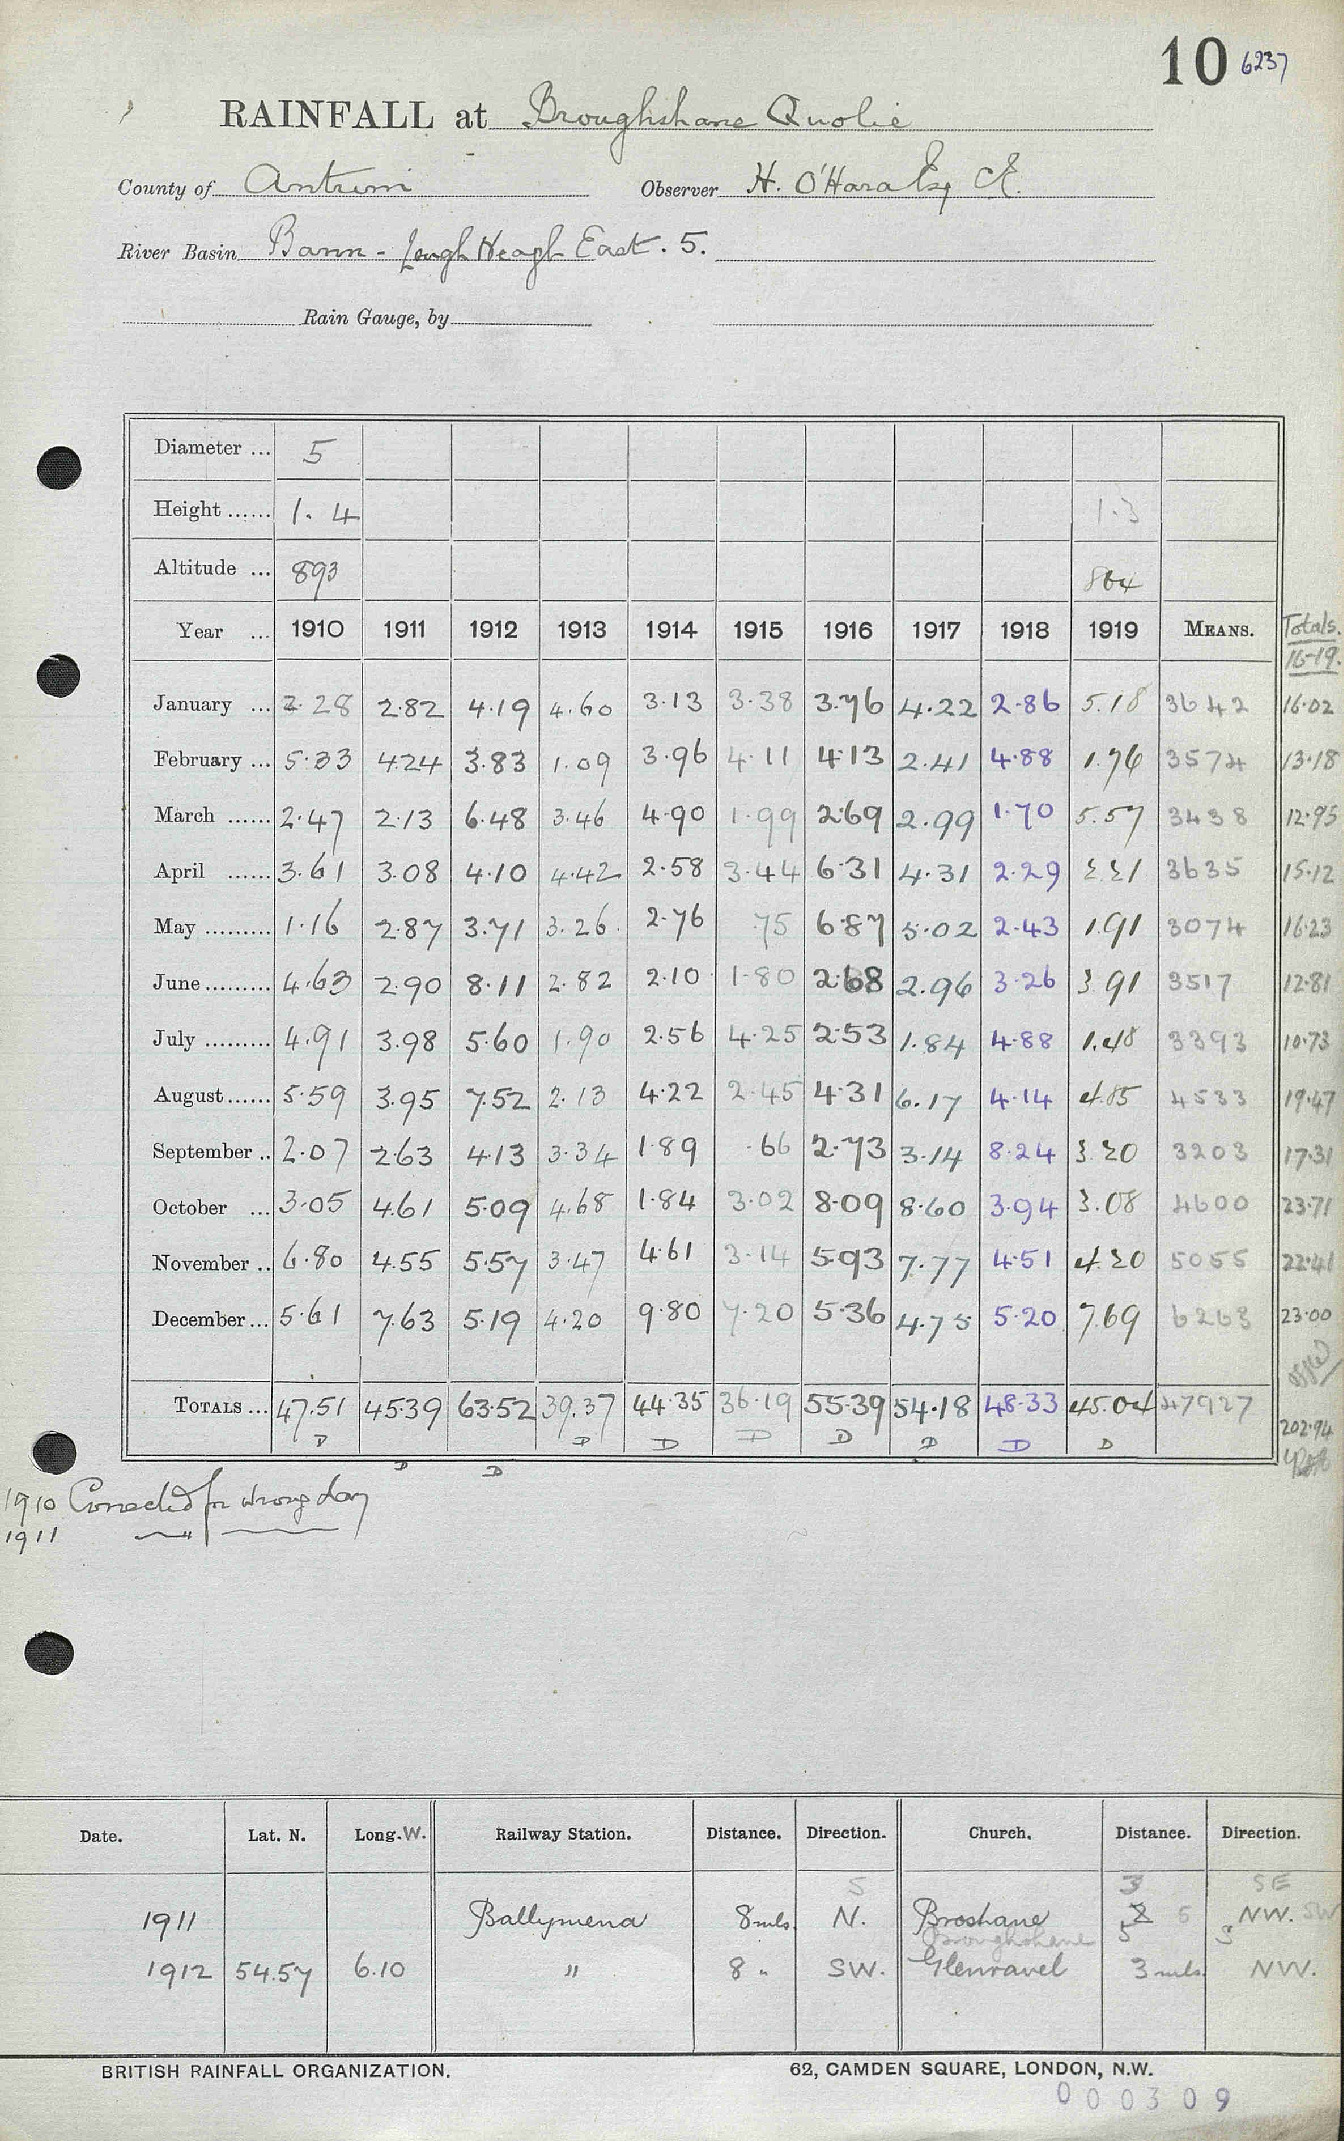 10 6237
RAINFALL at Broughshane Quolie
County of Antrim Observer H. O'Hara Esq CE.
River Basin Bann - Lough Neagh East. 5.
Rain Gauge, by
Diameter ... 5
Height ...... 1. 4 1.3
Altitude ... 893 864
Year ... 1910 1911 1912 1913 1914 1915 1916 1917 1918 1919 MEANS. Totals. 16-19.
January ... 2.28 2.82 4.19 4.60 3.13 3.38 3.76 4.22 2.86 5.18 3642 16.02
February ... 5.33 4.24 3.83 1.09 3.96 4.11 4.13 2.41 4.88 1.76 3574 13.18
March ...... 2.47 2.13 6.48 3.46 4.90 1.99 2.69 2.99 1.70 5.57 3438 12.95
April ...... 3.61 3.08 4.10 4.42 2.58 3.44 6.31 4.31 2.29 2.21 3635 15.12
May ......... 1.16 2.87 3.71 3.26 2.76 .75 6.87 5.02 2.43 1.91 3074 16.23
June ......... 4.63 2.90 8.11 2.82 2.10 1.80 2.68 2.96 3.26 3.91 3517 12.81
July ......... 4.91 3.98 5.60 1.90 2.56 4.25 2.53 1.84 4.88 1.48 3393 10.73
August ...... 5.59 3.95 7.52 2.13 4.22 2.45 4.31 6.17 4.14 4.85 4533 19.47
September .. 2.07 2.63 4.13 3.34 1.89 .66 2.73 3.14 8.24 3.20 3203 17.31
October ... 3.05 4.61 5.09 4.68 1.84 3.02 8.09 8.60 3.94 3.08 4600 23.71
November .. 6.80 4.55 5.57 3.47 4.61 3.14 5.93 7.77 4.51 4.20 5055 22.41
December ... 5.61 7.63 5.19 4.20 9.80 7.20 5.36 4.75 5.20 7.69 6263 23.00
TOTALS ... 47.51 45.39 63.52 39.37 44.35 36.19 55.39 54.18 48.33 45.04 47927 202.94
D D D D D D D D
D D
1910 Corrected for wrong day
1911 " 
Date. Lat. N. Long. W. Railway Station. Distance. Direction. Church. Distance. Direction.
S 3 SE
1911 Ballymena 8 mls. N. Broshane 2 5 NW. SW
Broughshane 5 S
1912 54.57 6.10 " 8 " SW. Glenravel 3 mls. NW.
BRITISH RAINFALL ORGANIZATION. 62, CAMDEN SQUARE, LONDON, N.W.
000309